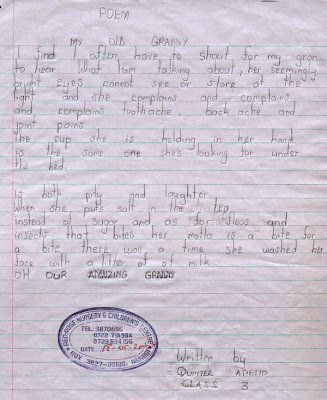 POEM
MY OLD GRANNY
I find I often have to shout for my gran
to hear what I am talking about, her seemingly
bright eyes cannot see or store at the
light and she complains and complains
and complains toothache, back ache and
joint pains
the cup she is holding in her hand
is the same one she's looking for under
the bed.
Is both pity and laughter
when she puts salt in the tea
instead of sugar and as for fleas and
insects that bites her motto is a bite for
a bite there was a time she washed her
face with a litter of of milk
OH OUR AMAZING GRANNY
NURSERY & CHILDREN'S CENTRE
TEL: 3870596
0722 718984
0723 834156
DATE
BOX 3827-00100, NAIROBI
Written by
QUINTER ATIENO
CLASS 3